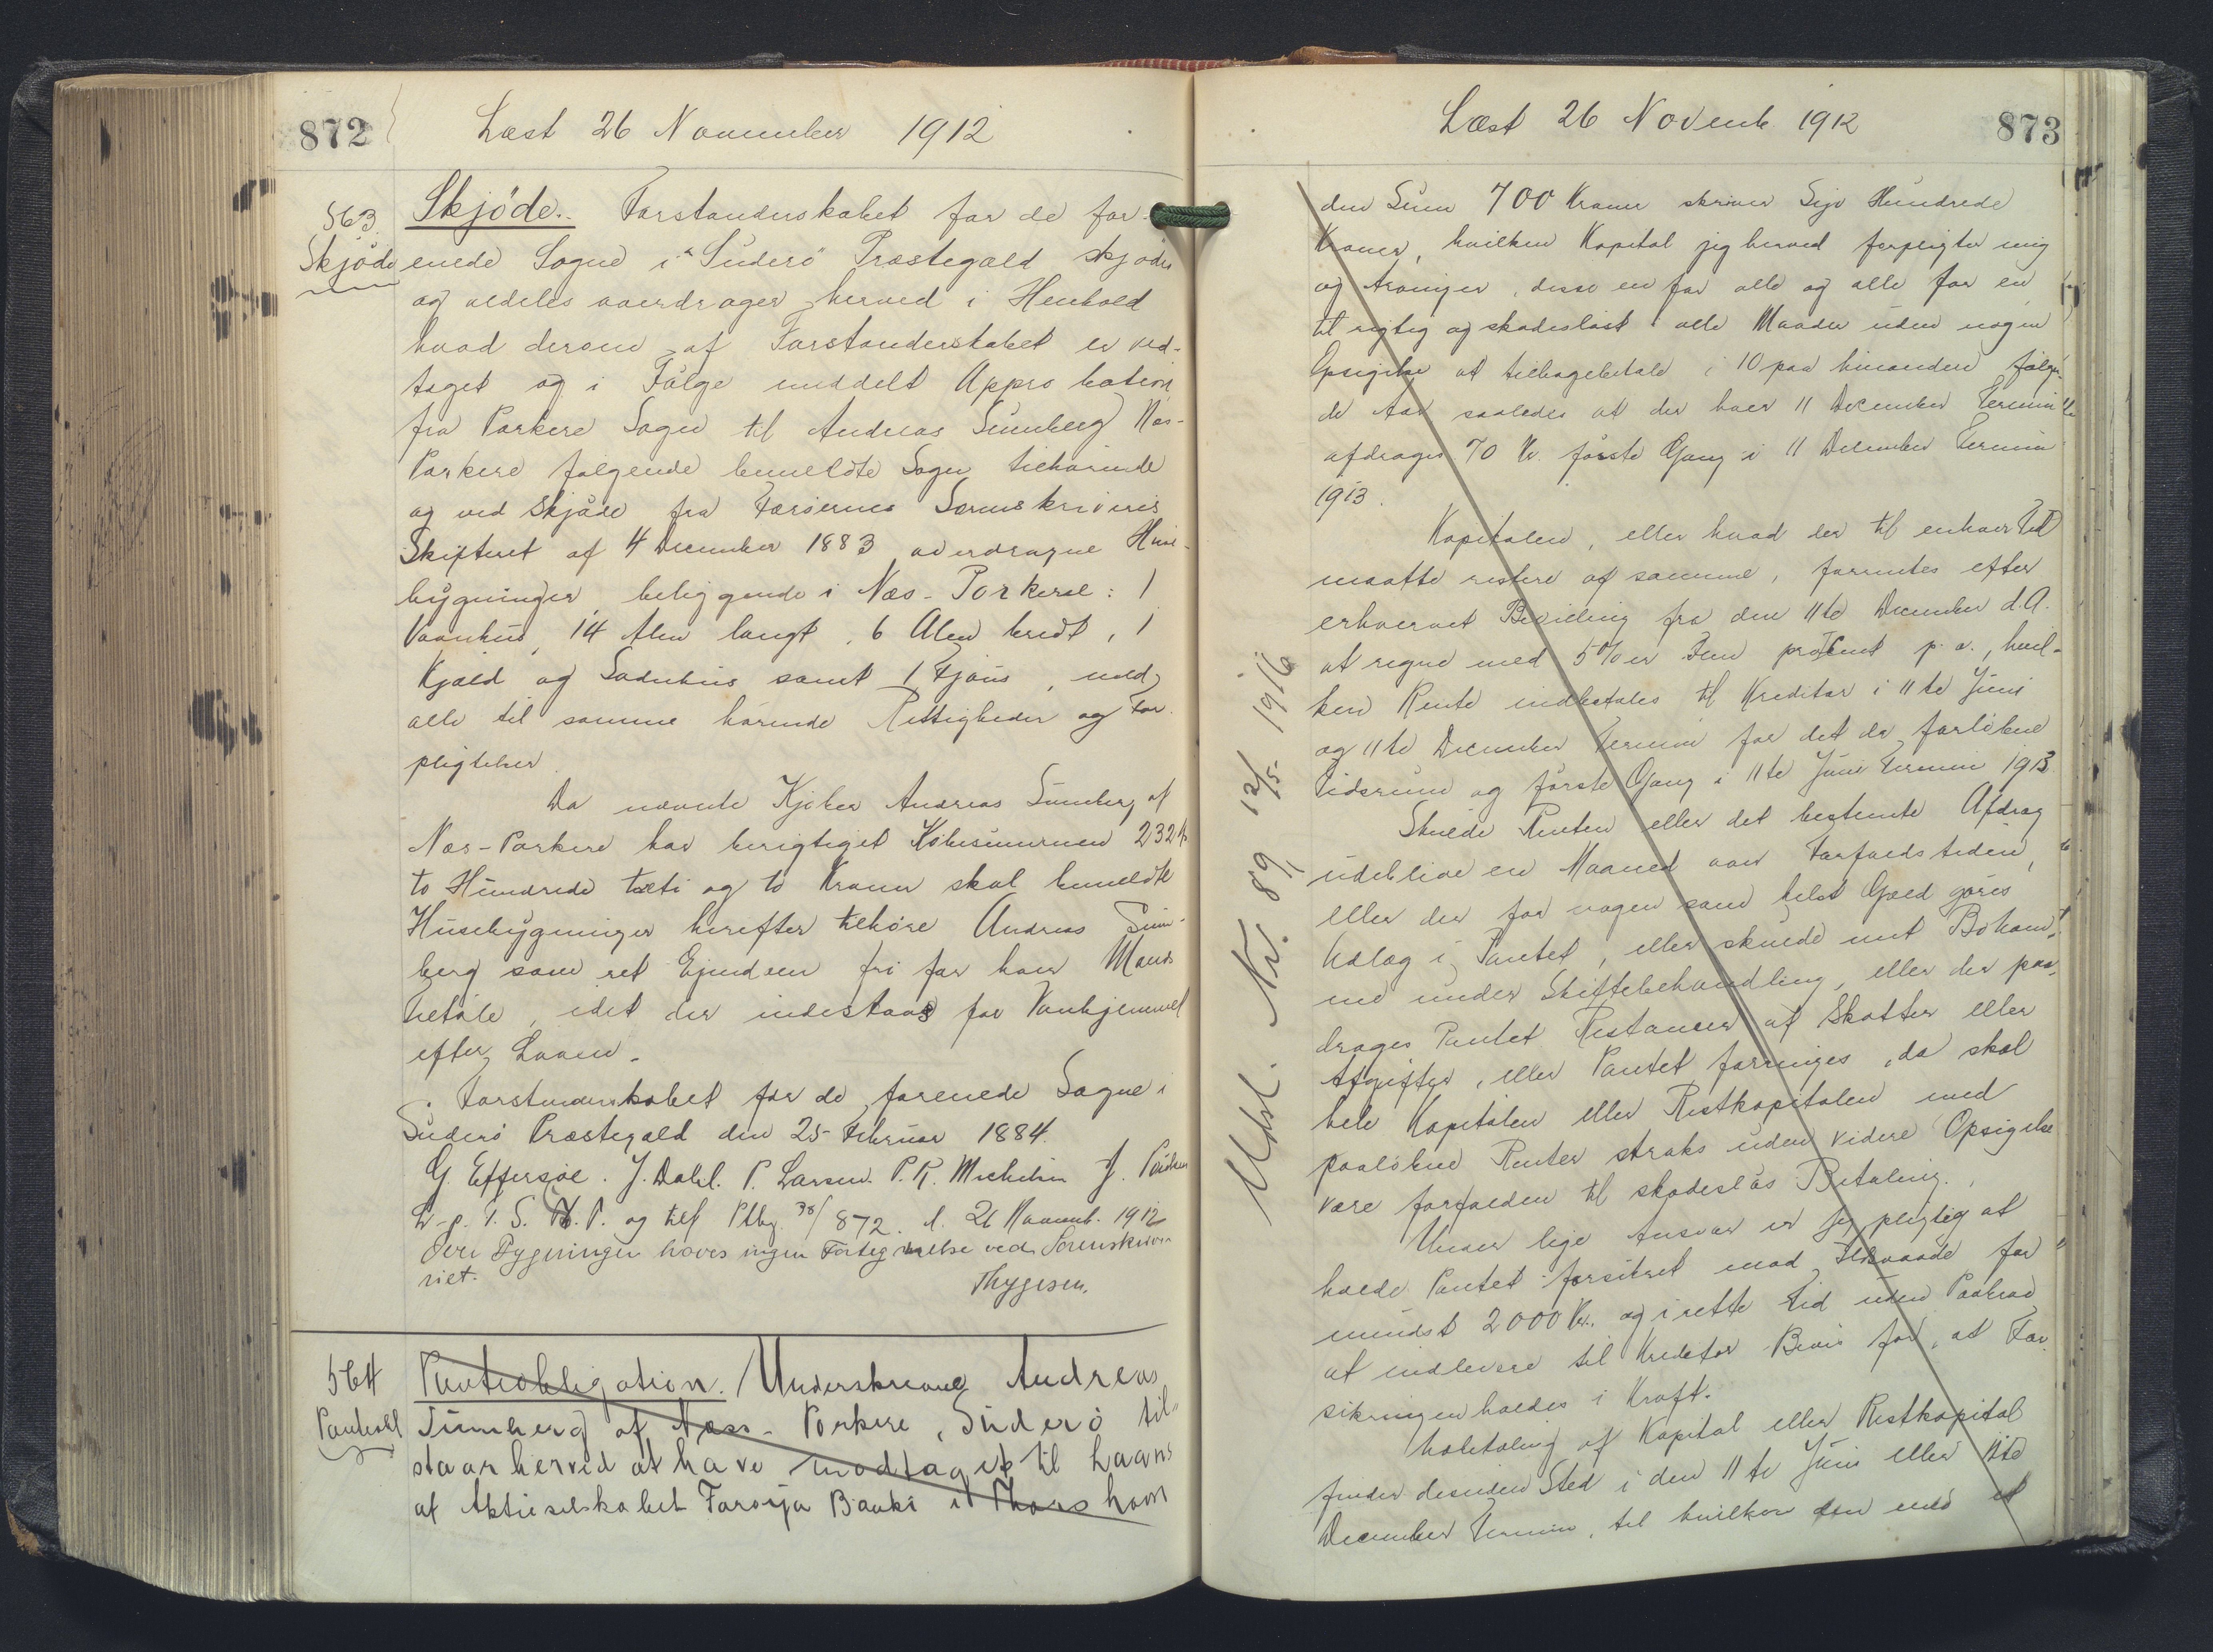 872
Læst 26 November 1912
563.
Skjöde
Skjöde. Forstanderskabet for de for-
enede Sogne i "Suderö" Præstegæld skjöder
og aldeles overdrager herved i Henhold
hvad derom af Forstanderskabet er ved-
taget og i Fölge meddelt Approbation
fra Porkere Sogn til Andreas Sumberg Næs-
Porkere fölgende bemeldte Sogn tilhörende
og ved Skjöde fra Færöernes Sorenskriveris
Skifteret af 4 December 1883 overdragne Huse-
bygninger beliggende i Næs-Porkere: 1
Vaanhus, 14 Alen langt, 6 Alen bredt, 1
Kjæld og Sodnhus samt 1 Fjøus, med
alle til samme hörende Rettigheder og For-
pligtelser
Da nævnte Kjöber Andreas Sumberg af
Næs-Porkere har berigtiget Köbesummen 232 Kr
to Hundrede træti og to Kroner skal bemeldte
Husebygninger herefter tilhöre Andreas Sum-
berg som ret Ejendom fri for hver Mands
Tiltale, idet der indestaas for Vanhjemmel
efter Loven.
Forstanderskabet for de forenede Sogne i
Suderö Præstegæld den 25 Februar 1884.
G. Effersöe. J. Dahl. P. Larsen. P. R. Michelsen J. Poulsen
L-p. T. S. P. og tilf Ptbg. 38/872. d. 26 Novemb. 1912
Over Bygningen haves ingen Fortegnelse ved Sorenskrive-
riet.
Thygesen.
564
Pantobl
Pantobligation. Underskrevne Andreas
Sumberg af Næss-Porkere, Suderö til-
staar herved at have modtaget til Laans
af Aktieselskabet Foroya Banki i Thorshavn
873
Læst 26 Novemb 1912
den Sum 700 Kroner skriver Syv Hundrede
Kroner, hvilken Kapital jeg herved forpligter mig
og Arvinger, disse en for alle og alle for en
til rigtig og skadeslöst i alle Maader uden nogen
Opsigelse at tilbagebetale i 10 paa hinanden fölgen-
de Aar saaledes at der hver 11 December Termin
afdrages 70 Kr. förste Gang i 11 December Termin
1913.
Kapitalen, eller hvad der til enhver Tid
maatte restere af samme, forrentes efter
erhvervet Bevilling fra den 11te December d.A.
at regne med 5% er Fem procent p.a., hvil-
ken Rente indbetales til Kreditor i 11te Juni
og 11te December Termin for det da forlöbne
Tidsrum og förste Gang i 11te Juni Termin 1913
Skulde Renten eller det bestemte Afdrag
udeblive en Maaned over Forfaldstiden,
eller der for nogen som helst Gæld göres
Udlæg i Pantet, eller skulde mit Bo kom-
me under Skiftebehandling, eller der paa-
drages Pantet Restancer af Skatter eller
Afgifter, eller Pantet forringes, da skal
hele Kapitalen eller Restkapitalen med
paalöbne Renter straks uden videre Opsigelse
være forfalden til skadeslös Betaling.
Under lige Ansvar er jeg pligtig at
holde Pantet forsikret mod Ildsvaade for
mindst 2000 Kr. og i rette Tid uden Paakrav
at indlevere til Kreditor Bevis for, at For-
sikringen holdes i Kraft.
Udbetaling af Kapital eller Restkapital
finder desuden Sted i den 11te Juni eller 11te
December Termin, til hvilken den med et
Udsl. Nr. 89 12/5 1916